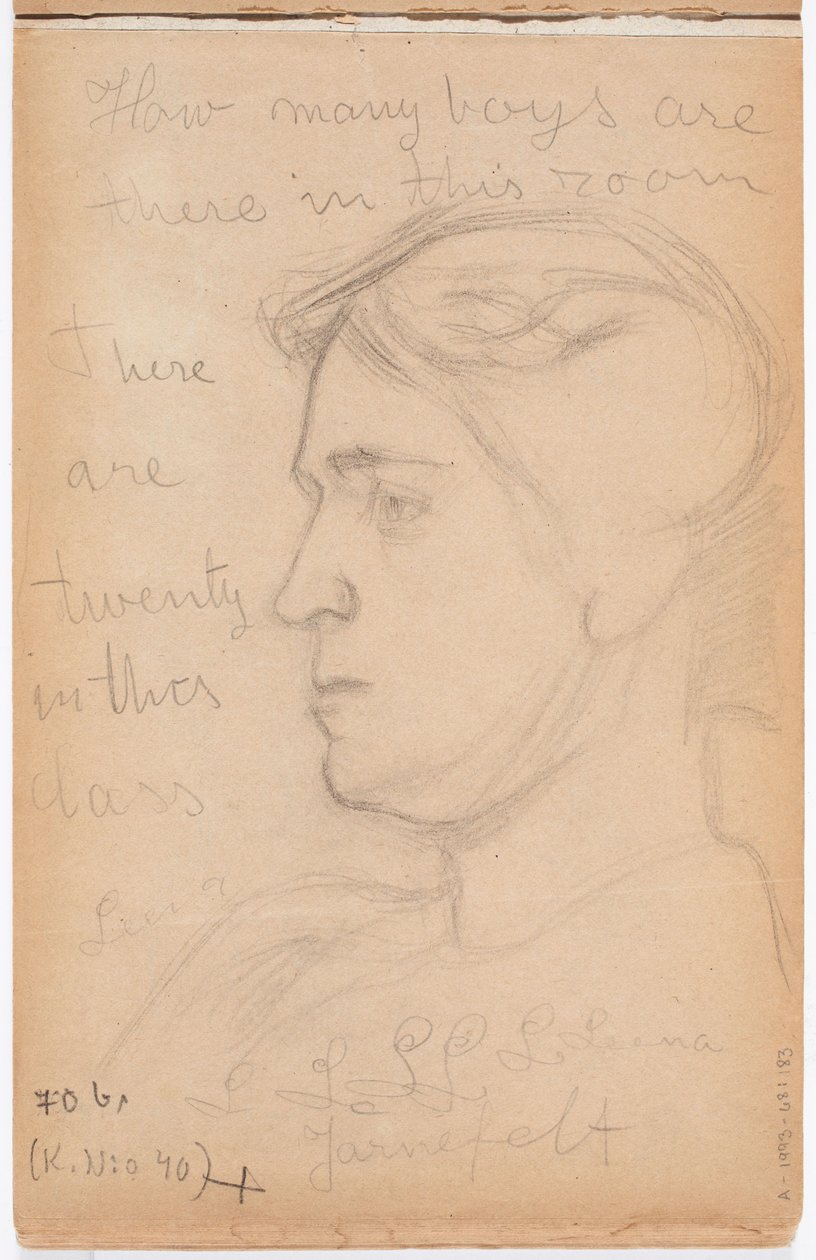 How many boys are
there in this room
There
are
twenty
in this
class
Leena
L L L L L Leena
Jarnefelt
70 b.
(K. N:o 40)
A-1993-68:183